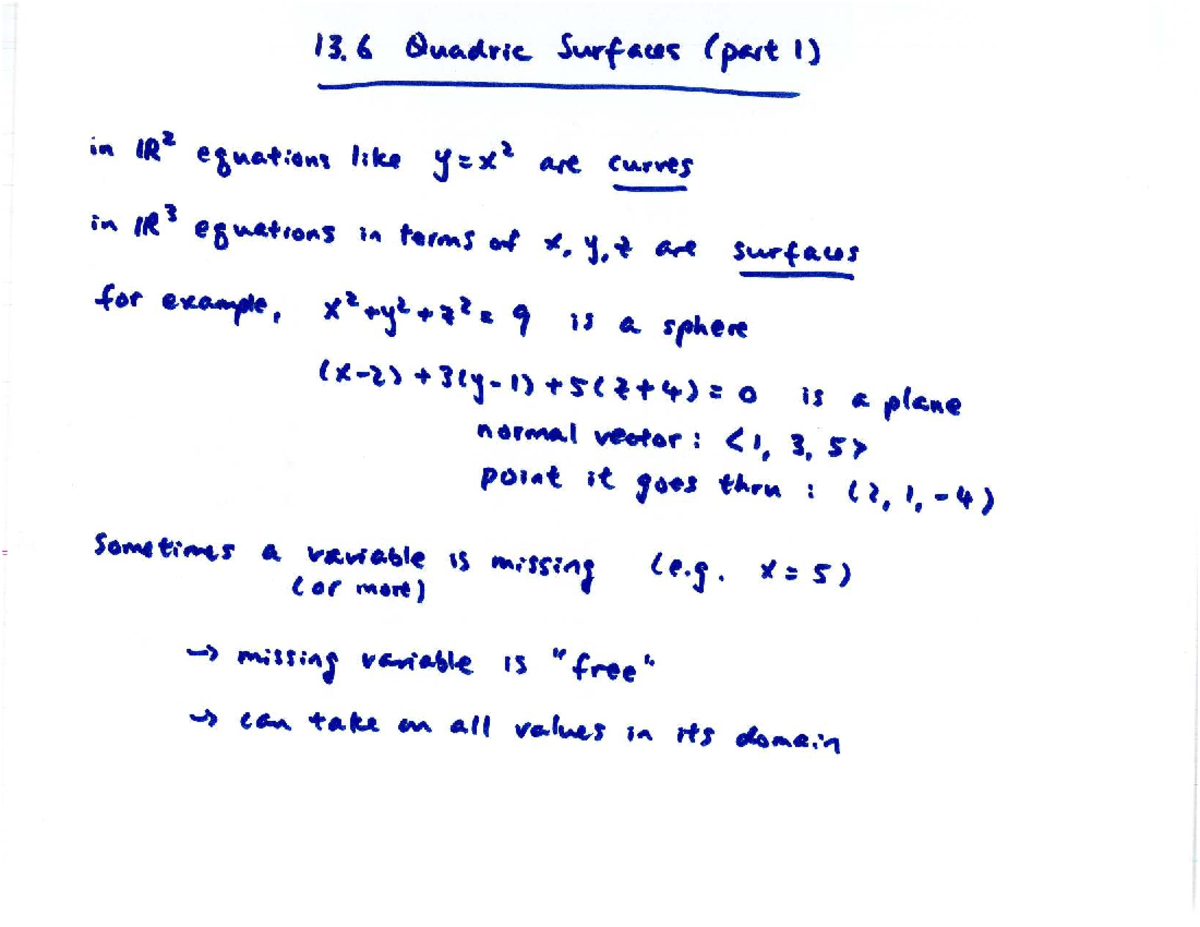 13.6 Quadric Surfaces (part 1)
in ℝ² equations like y=x² are curves
in ℝ³ equations in terms of x, y, z are surfaces
for example, x²+y²+z²=9 is a sphere
(x-2)+3(y-1)+5(z+4)=0 is a plane
normal vector: <1, 3, 5>
point it goes thru : (2, 1, -4)
Sometimes a variable is missing (e.g. x=5)
(or more)
→ missing variable is "free"
→ can take on all values in its domain